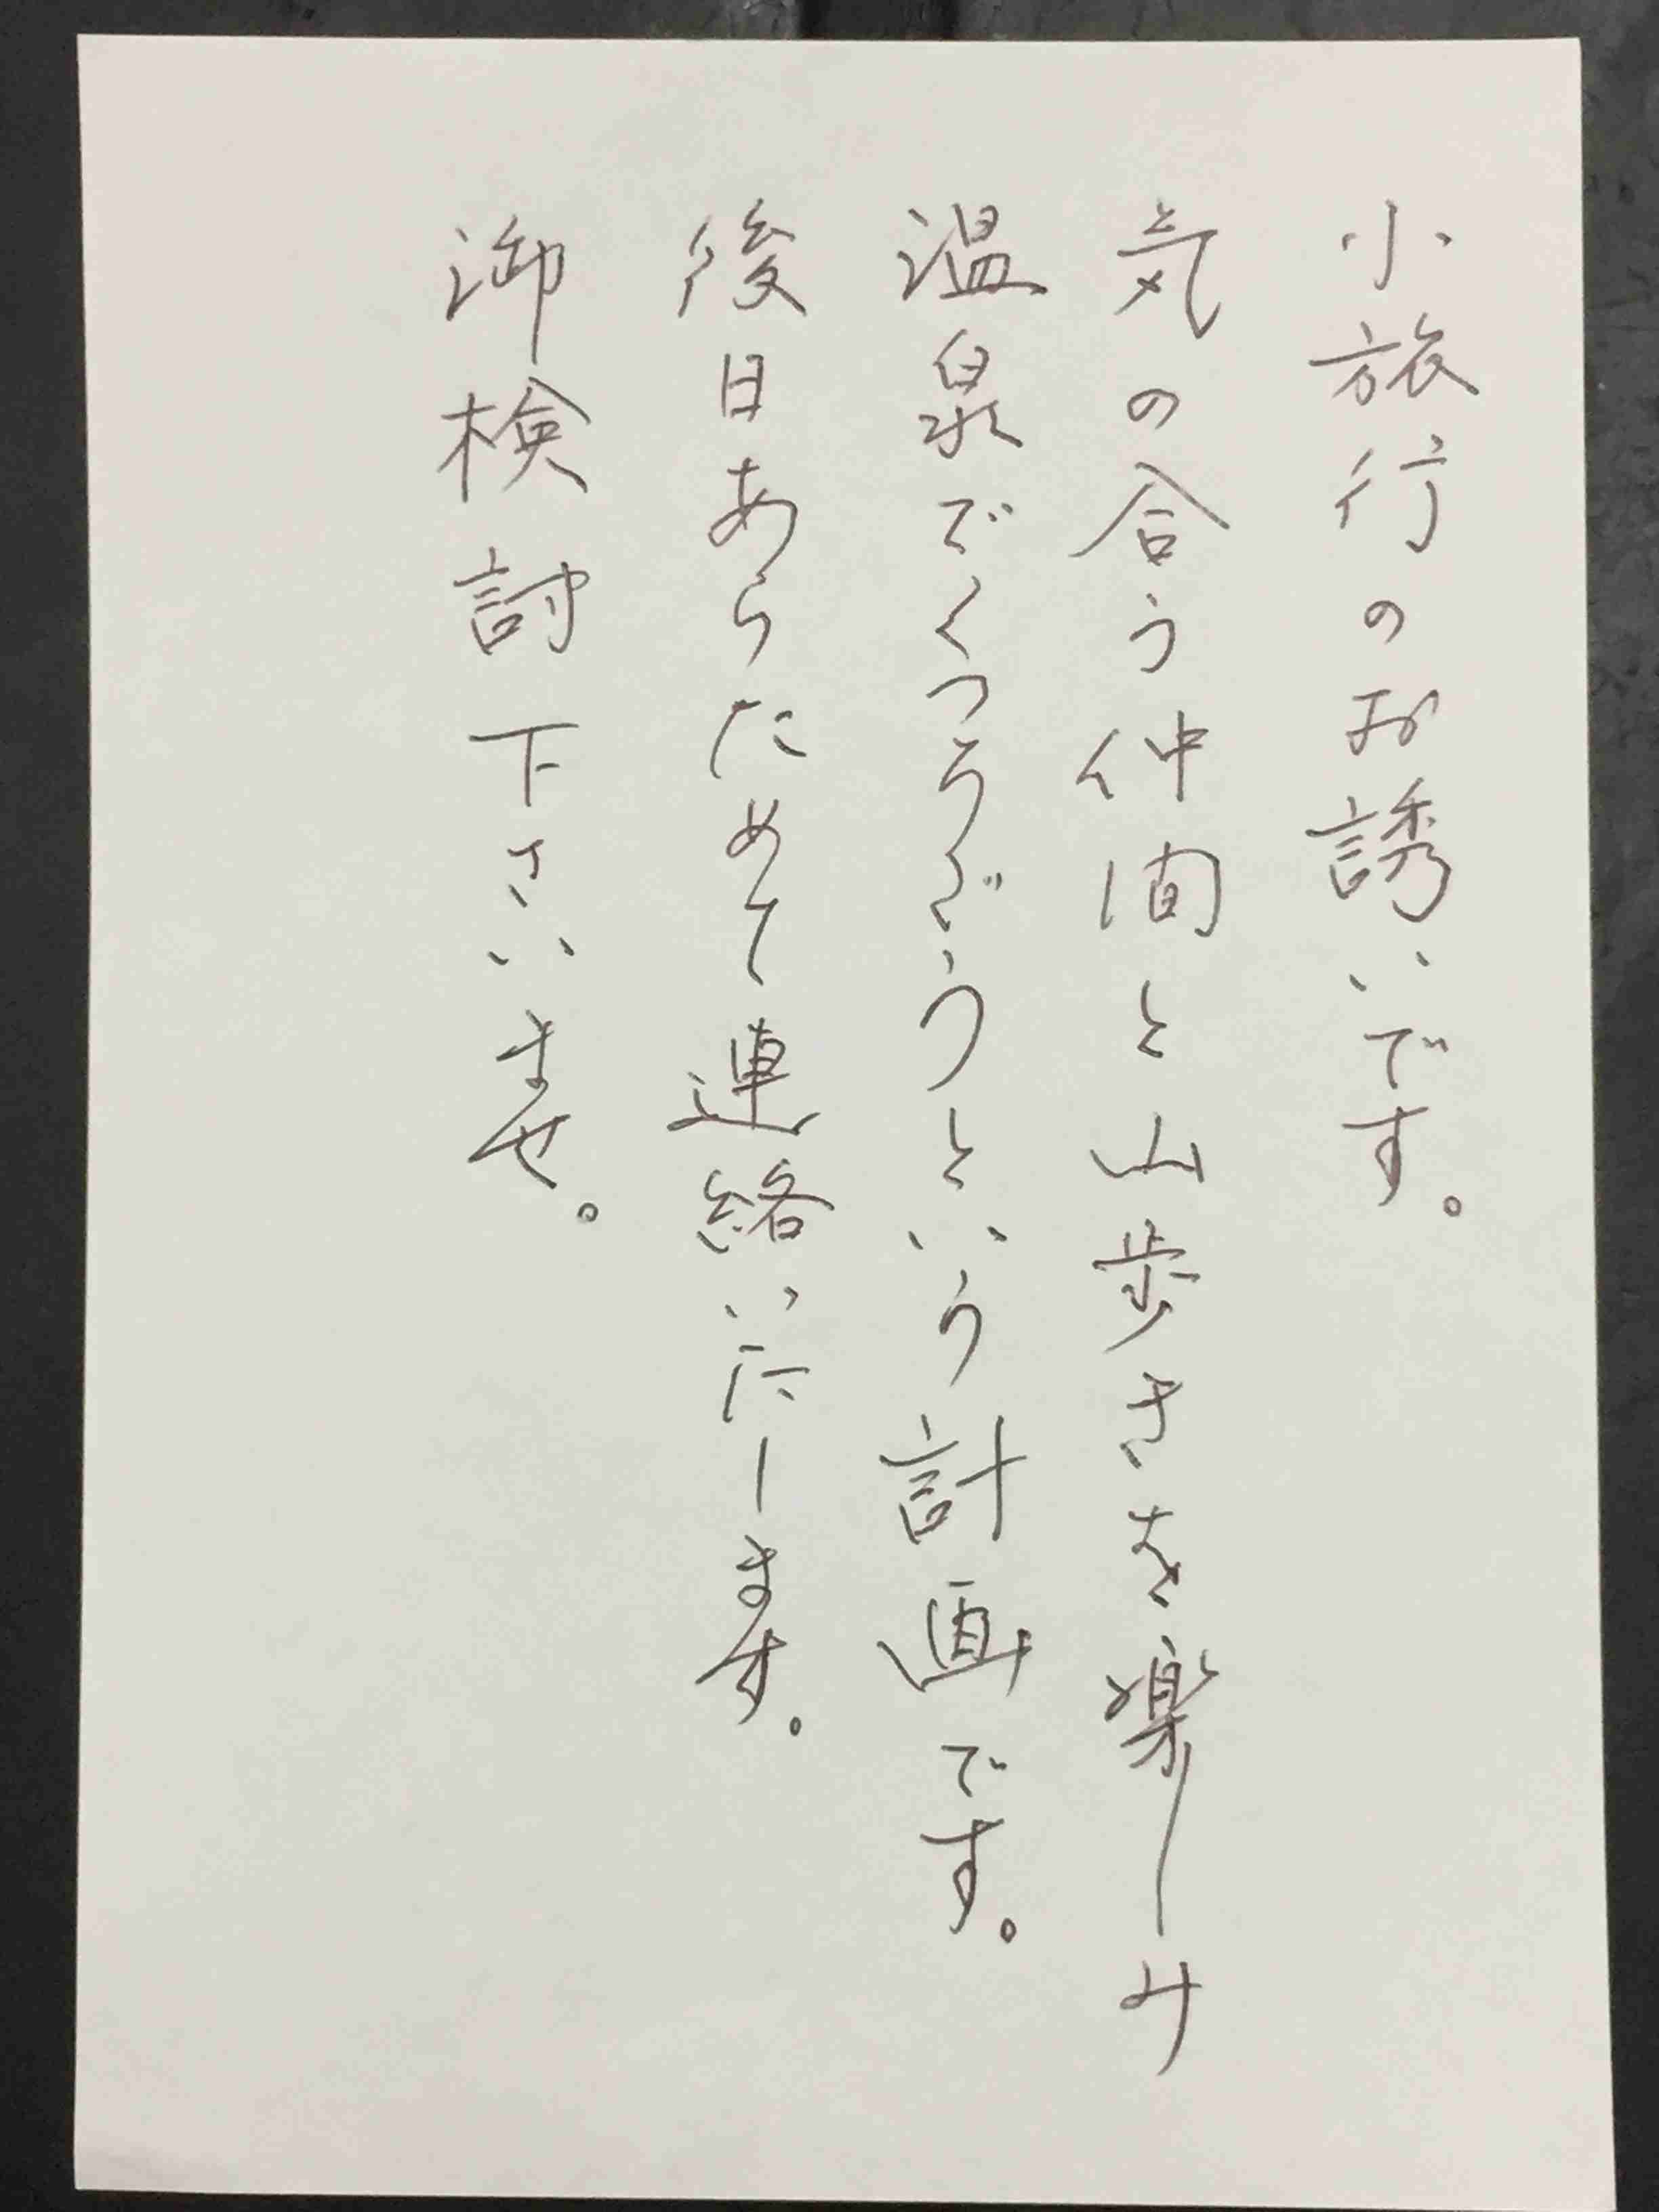 小旅行のお誘いです。
気の合う仲間と山歩きを楽しみ
温泉でくつろごうという計画です。
後日あらためて連絡いたします。
御検討下さいませ。